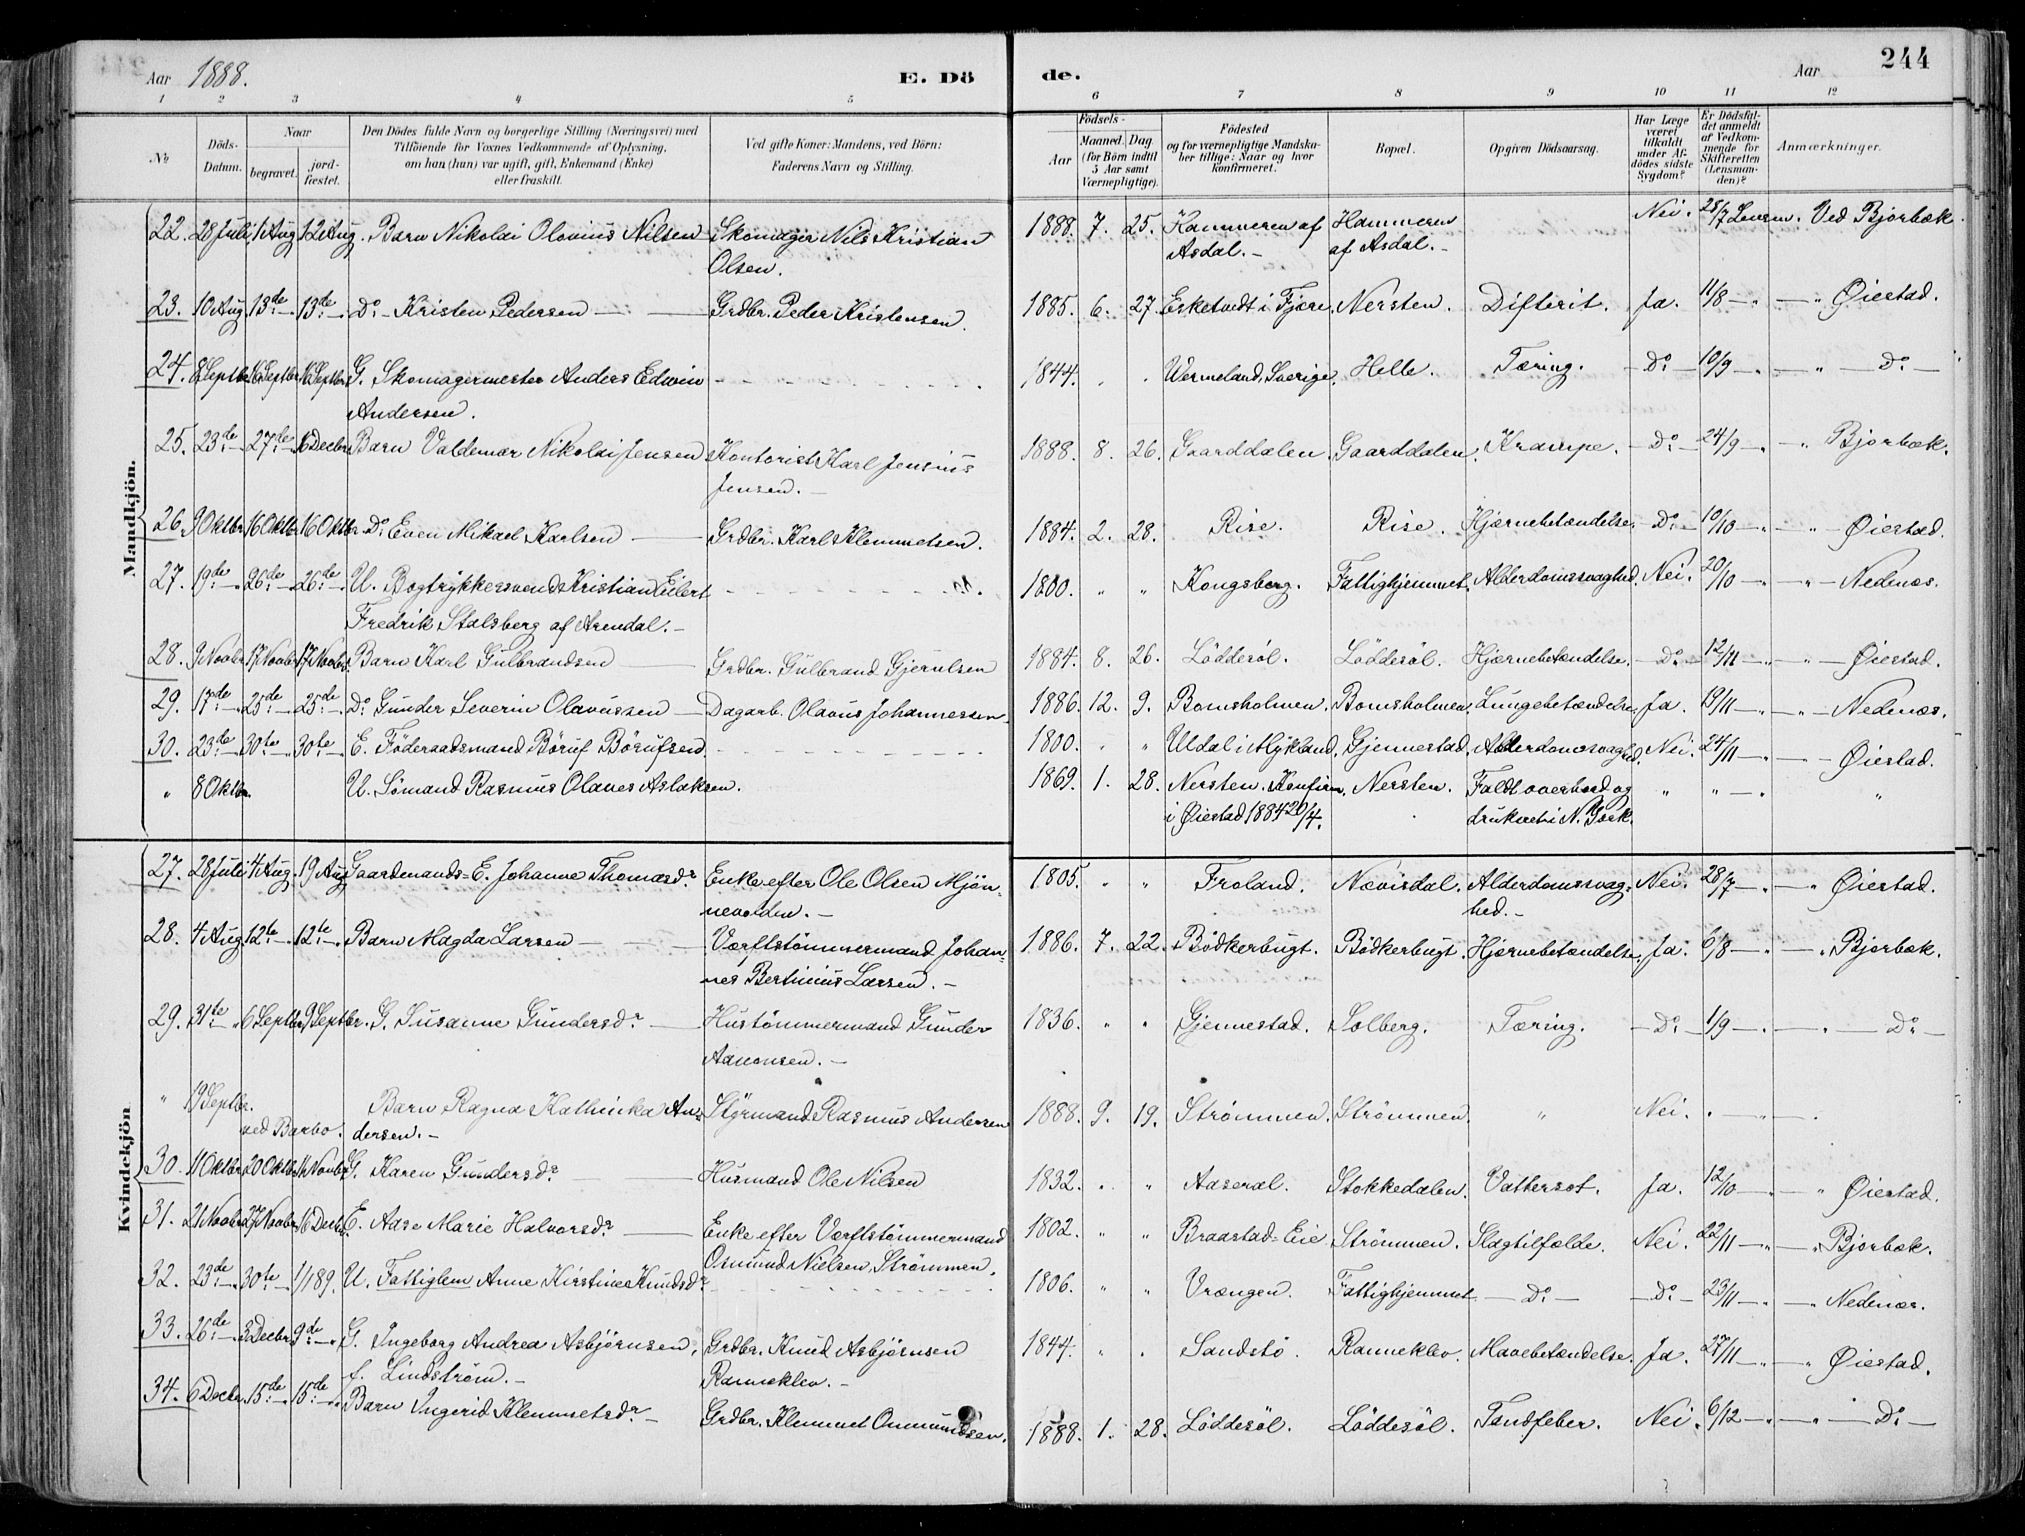 Aar 1888. E. Dö de. Aar 244
1 2 3 4 5 6 7 8 9 10 11 12
No Döds-Datum. Naar begravet. jord-fæstet. Den Dödes fulde Navn og borgerlige Stilling (Næringsvei) med Tilföiende for Voxnes Vedkommende af Oplysning, om han (hun) var ugift, gift, Enkemand (Enke) eller fraskilt. Ved gifte Koner: Mandens, ved Börn: Faderens Navn og Stilling. Födsels- Aar Maaned. Dag (for Börn indtil 5 Aar samt Værnepligtige). Födested og for værnepligtige Mandskaber tillige: Naar og hvor konfirmeret. Bopæl. Opgiven Dödsaarsag. Har Læge været tilkaldt under Afdödes sidste Sygdom? Er Dödsfaldet anmeldt af Vedkommende for Skifteretten (Lensmanden)? Anmærkninger.
Mandkjön.
22. 28 Juli 1 Aug 12 Aug. Barn Nikolai Olovius Nilsen Skomager Nils Kristian 1888. 7. 25. Hammeren af Hammeren Nei. 28/7 Lensm. Ved Bjorbæk.
Olsen. Asdal. – af Asdal. –
23. 10 Aug 13de 13de Do Kristen Pedersen Grdbr. Peder Kristensen. 1885. 6. 27. Eskelvedt i Fjære. Nersten. Difterit. Ja. 11/8 – " – " Øiestad.
24. 8 Septbr. 16 Septbr. 16 Septbr. G. Skomagermester Anders Edwin 1844. " " Wermeland, Sverige. Helle. Tæring. Do 10/9 – " – " Do
Andersen.
25. 23de 27de 16 Decbr. Barn Valdemar Nikolai Jensen Kontorist Karl Jensius 1888. 8. 26. Gaarddalen. Gaarddalen. Krampe. Do 24/9 – " – " Bjorbæk.
Jensen. –
26. 9 Oktbr. 16 Oktbr. 16 Oktbr. Do Even Mikael Karlsen Grdbr. Karl Klemmetsen. 1884. 2. 28. Rise. Rise. Hjærnebetændelse. Do 10/10 – " – " Øiestad.
27. 19de 26de 26de U. Bogtrykkersvend Kristian Eilert 1800. " " Kongsberg. Fattighjemmet. Alderdomssvaghed. Nei. 20/10 – " – " Nedenæs.
Fredrik Stalsberg af Arendal. –
28. 9 Novbr. 17 Novbr. 17 Novbr. Barn Karl Gulbrandsen Grdbr. Gulbrand Gjerulsen 1884. 8. 26. Löddesöl. Löddesöl. Hjærnebetændelse. Do 12/11 – " – " Øiestad.
29. 17de 25de 25de Do Gunder Severin Olavussen Dagarb. Olavus Johannessen. 1886. 12. 9. Bomsholmen. Bomsholmen. Lungebetændelse. Ja. 19/11 – " – " Nedenæs.
30. 23de 30te 30te E. Föderaadsmand Böruf Börufsen. 1800. " " Uldal i Mykland. Gjennestad. Alderdomssvaghed. Nei. 24/11 – " – " Øiestad.
" 8 Oktbr. U. Sömand Rasmus Olaves Aslaksen. 1869. 1. 28. Nersten. Konfirm. Nersten. Faldt overbord og " " – " "
i Øiestad 1884 20/4. druknet i N. York.
Kvindekjön
27. 28 Juli 4 Aug. 19 Aug Gaardmands-E. Johanne Thomasdr. Enke efter Ole Olsen Mjön- 1805. " " Froland. Nævisdal. Alderdomssvag- Nei. 28/7 – " – " Øiestad.
nevolden. – hed. –
28. 4 Aug. 12te 12te Barn Magda Larsen Værftstömmermand Johan- 1886. 7. 22. Bödkerbugt. Bödkerbugt. Hjærnebetændelse. Ja. 6/8 – " – " Bjorbæk.
nes Bertinius Larsen. –
29. 31te 6 Septbr. 9 Septbr. G. Susanne Gundersdr. Hustömmermand Gunder 1836. " " Gjennestad. Solberg. Tæring. Do 1/9 – " – " Do
Aanonsen. –
" 19 Septbr. Barn Ragna Kathinka An- Styrmand Rasmus Andersen 1888. 9. 19. Strömmen. Strömmen. " Nei. " – " – "
ved Barbo. dersen. –
30. 11 Oktbr. 20 Oktbr. 11 Novbr. G. Karen Gundersdr. Husmand Ole Nilsen 1832. " " Aaseral. Stokkedalen. Vattersot. Ja. 12/10 – " – " Øiestad.
31. 21 Novbr. 27 Novbr. 16 Decbr. E. Aase Marie Halvorsdr. Enke efter Værftstömmermand 1802. " " Braastad-Eie Strömmen. Slagtilfælde. Nei. 22/11 – " – " Bjorbæk.
Osmund Nielsen, Strömmen.
32. 23de 30te 1/1 89. U. Fattiglem Anne Kirstine Knudsdr. 1806. " " Vrængen. Fattighjemmet Do Do 23/11 – " – Nedenæs.
33. 26de 3 Decbr. 9de G. Ingeborg Andrea Asbjørnsen, Grdbr. Knud Asbjørnsen 1844. " " Sandstö. Ranneklev. Mavebetændelse. Ja. 27/11 – " – " Øiestad.
f. Lindstrøm. – Ranneklev. –
34. 6 Decbr. 15de 15de Barn Ingerid Klemmetsdr. – Grdbr. Klemmet Ommundsen. 1888. 1. 28. Löddesöl. Löddesöl. Tandfeber. Nei. 6/12 – " – " Do